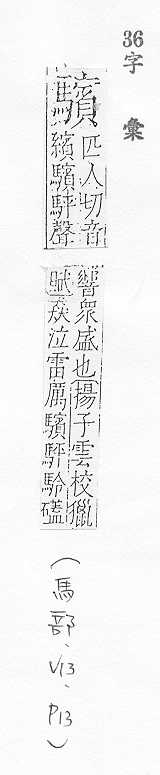 36字 彙
驞
匹人切音
繽驞駍聲
響衆盛也揚子雲校獵
賦猋泣雷厲驞駍駖磕
(馬部、V13、P13)